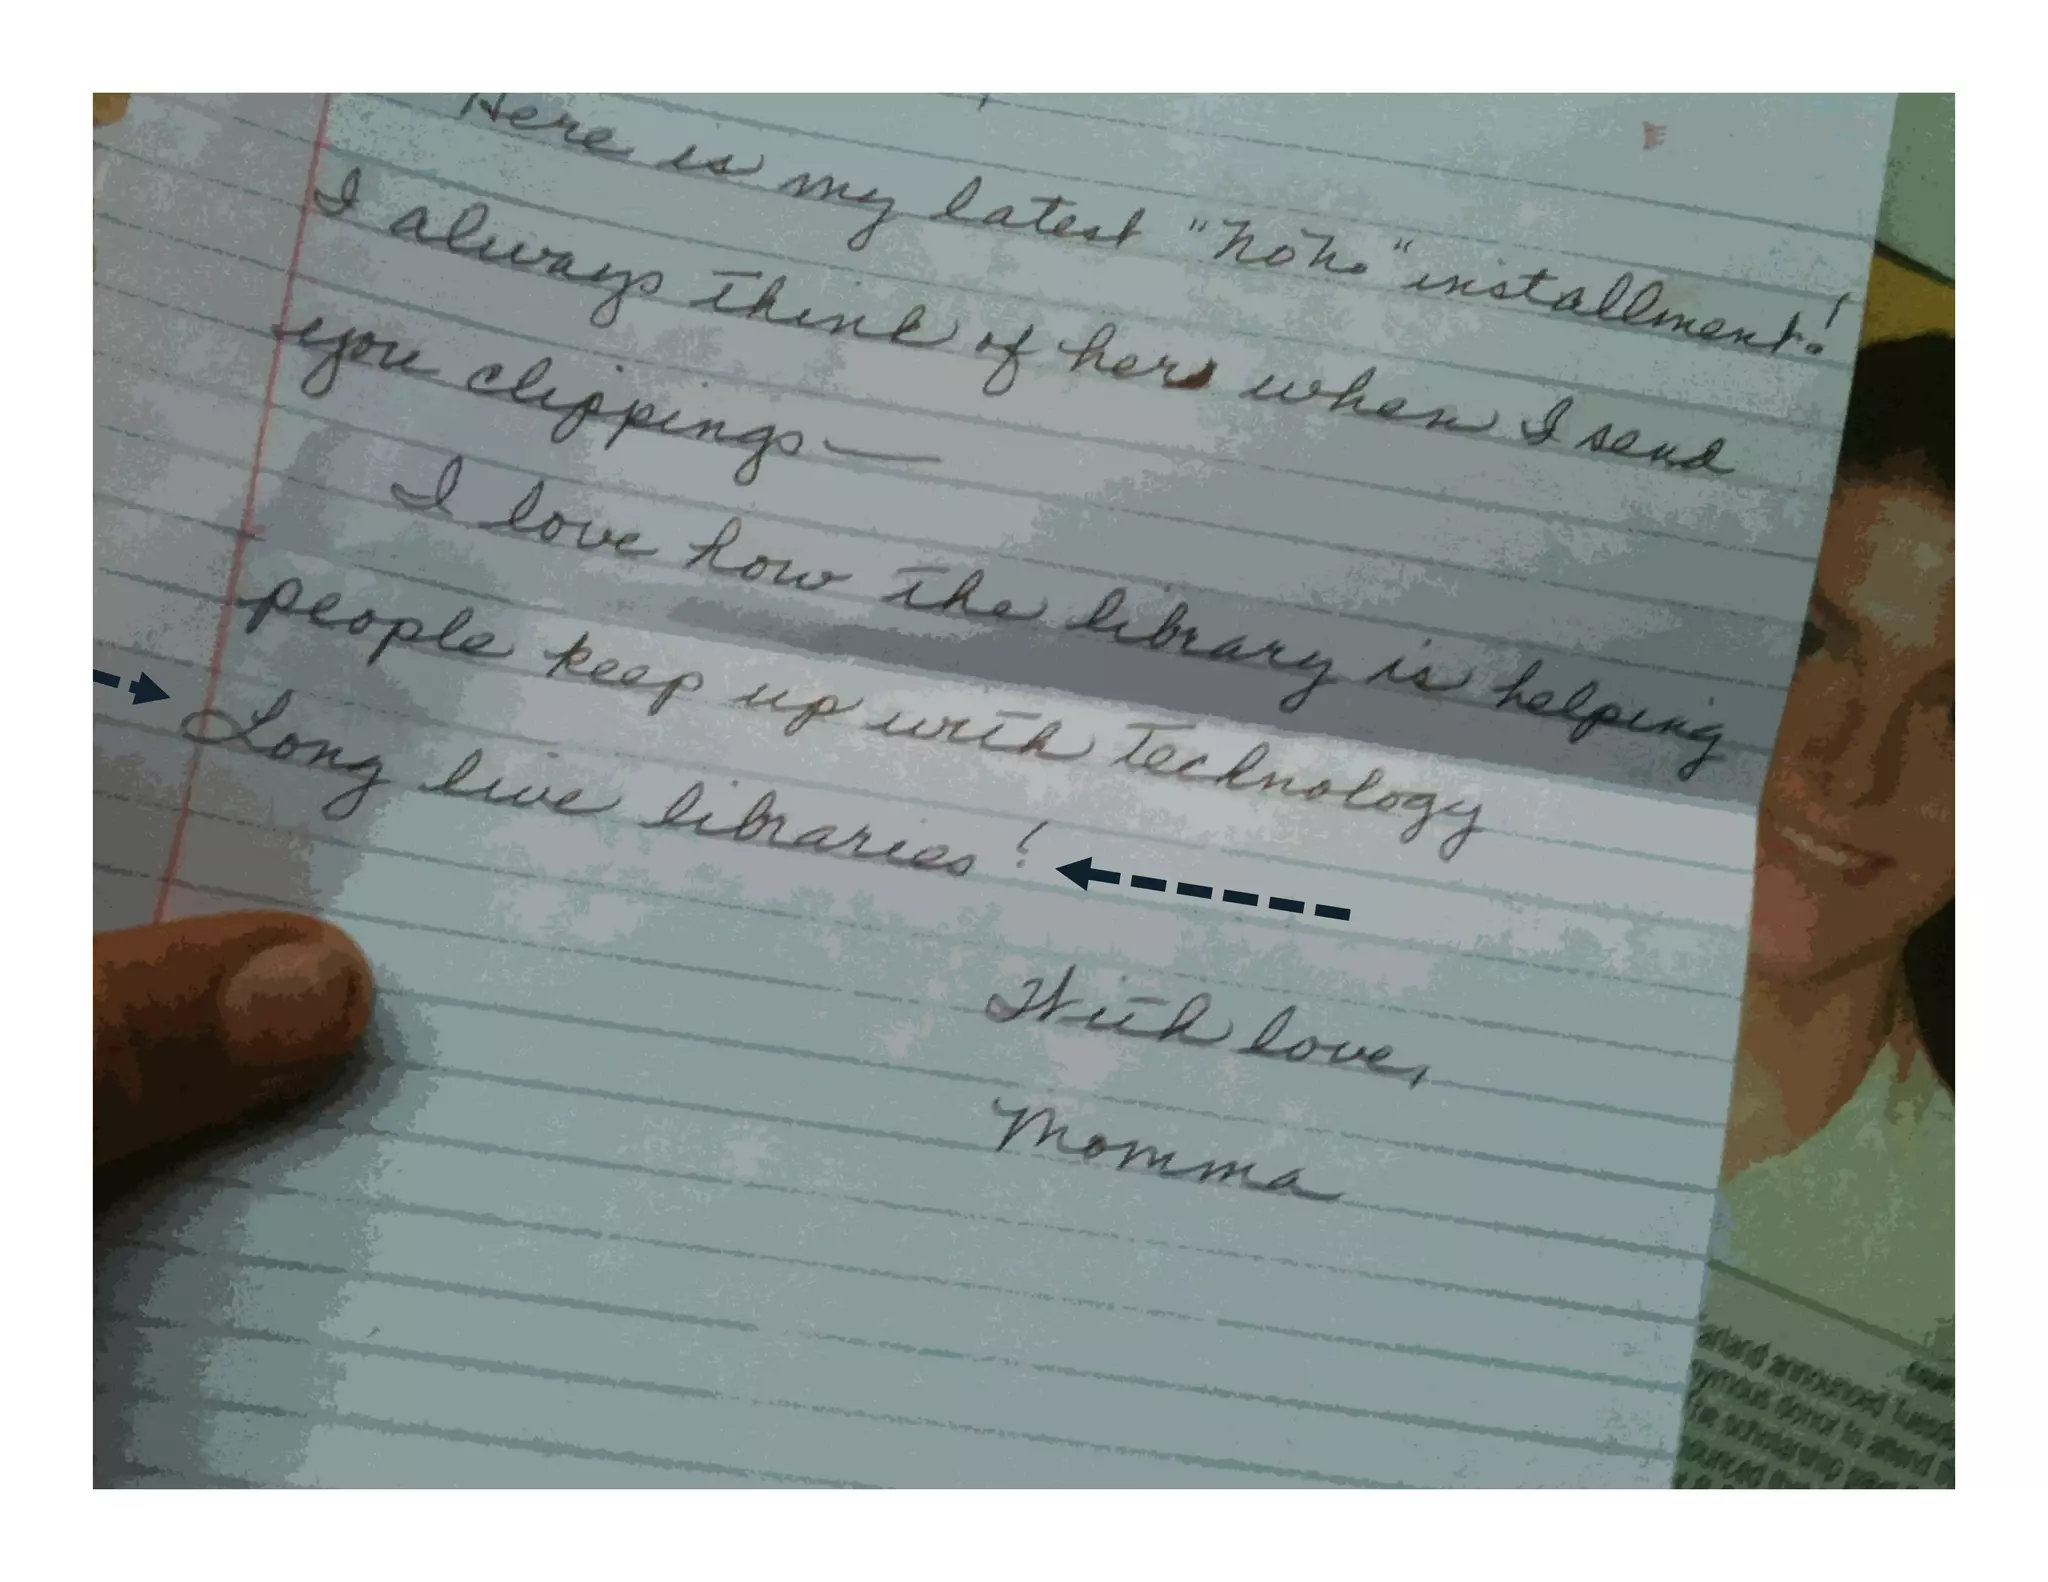 Here is my latest "NoNo" installment!
I always think of her when I send
you clippings —
I love how the library is helping
people keep up with technology
Long live libraries!
With love,
Momma
arland announced Tuesd
ymous donor to attend
he scholarship
ounced